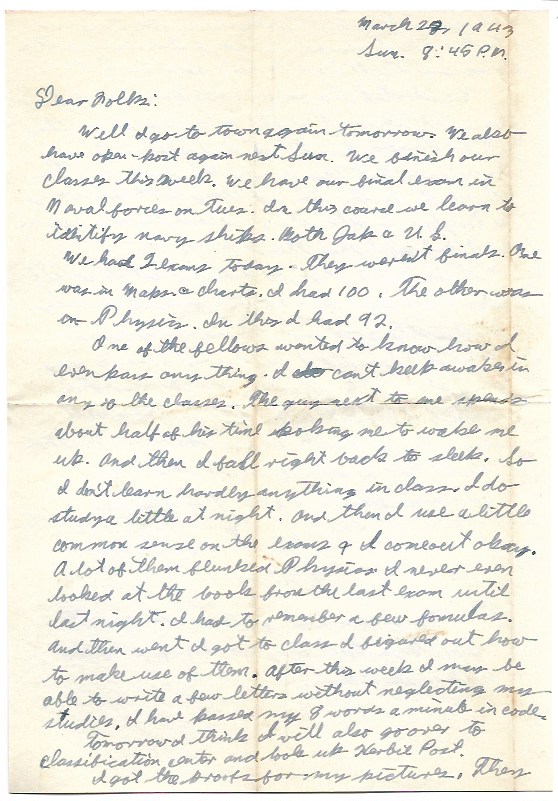 March 28, 1943
Sun. 8:45 P.M.
Dear Folks:
Well I go to town again tomorrow. We also
have open-post again next Sun. We finish our
classes this week. We have our final exam in
Naval forces on Tues. In this course we learn to
identify navy ships. Both Jap & U.S.
We had 2 exams today. They weren't finals. One
was in Maps & charts. I had 100. The other was
on Physics. In this I had 92.
One of the fellows wanted to know how I
even pass any thing. I can't keep awake in
any of the classes. The guy next to me spends
about half of his time poking me to wake me
up. And then I fall right back to sleep. So
I don't learn hardly anything in class. I do
study a little at night. And then I use a little
common sense on the exams & I come out okay.
A lot of them flunked Physics. I never even
looked at the book from the last exam until
last night. I had to remember a few fomulas.
And then went I got to class I figured out how
to make use of them. After this week I may be
able to write a few letters without neglecting my
studies. I have passed my 8 words a minute in code.
Tomorrow I think I will also go over to
classification center and look up Post.
I got the proofs for my pictures. They